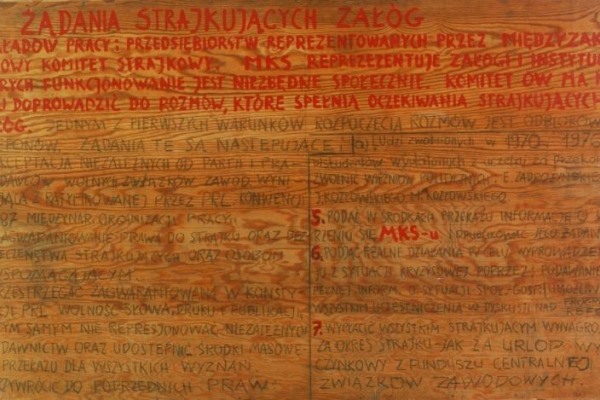 ŻĄDANIA STRAJKUJĄCYCH ZAŁÓG
ŁADÓW PRACY i PRZEDSIĘBIORSTW REPREZENTOWANYCH PRZEZ MIĘDZYZAK
OWY KOMITET STRAJKOWY. MKS REPREZENTUJE ZAŁOGI I INSTYTU
RYCH FUNKCJONOWANIE JEST NIEZBĘDNE SPOŁECZNIE. KOMITET ÓW MA N
U DOPROWADZIĆ DO ROZMÓW, KTÓRE SPEŁNIĄ OCZEKIWANIA STRAJKUJĄCYCH
ŁÓG. JEDNYM Z PIERWSZYCH WARUNKÓW ROZPOCZĘCIA ROZMÓW JEST ODBLOKOW
FONÓW. ŻĄDANIA TE SĄ NASTĘPUJĄCE
EPTACJA NIEZALEŻNYCH OD PARTII I PRA
DAWCÓW WOLNYCH ZWIĄZKÓW ZAWOD. WYNI
JĄCA Z RATYFIKOWANEJ PRZEZ PRL KONWENCJI
87 MIĘDZYNAR. ORGANIZACJI PRACY.
AGWARANTOWANIE PRAWA DO STRAJKU ORAZ BEZ
ECZEŃSTWA STRAJKUJĄCYCH ORAZ OSOBOM
WSPOMAGAJĄCYM
RZESTRZEGAĆ ZAGWARANTOWANĄ W KONSTY
JE PRL WOLNOŚĆ SŁOWA, DRUKU I PUBLIKACJI
TYM SAMYM NIE REPRESJONOWAĆ NIEZALEŻNYCH
DAWNICTW ORAZ UDOSTĘPNIĆ ŚRODKI MASOWE
PRZEKAZU DLA WSZYSTKICH WYZNAŃ
ZYWRÓCIĆ DO POPRZEDNICH PRAW:
a) Ludzi zwolnionych w 1970 1976
studentów wydalonych z uczelni za przekon
WOLNIĆ WIĘŹNIÓW POLITYCZNYCH E. ZADROŻYŃSKI
J. KOZŁOWSKIEGO M. KOZŁOWSKIEGO
5. PODAĆ W ŚRODKACH PRZEKAZU INFORMACJĘ O
RZENIU SIĘ MKS-u I OPUBLIKOWAĆ JEGO ŻĄDAN
6. PODAĆ REALNE DZIAŁANIA W CELU WYPROWADZEN
JU Z SYTUACJI KRYZYSOWEJ POPRZEZ: PODAWANIE
PEŁNEJ INFORM. O SYTUACJI SPOŁ-GOSP.
WSZYSTKIM UCZESTNICZENIA W DYSKUSJI NAD PROGRA
7. WYPŁACIĆ WSZYSTKIM STRAJKUJĄCYM WYNAGRO
ZA OKRES STRAJKU JAK ZA URLOP WY
CZYNKOWY Z FUNDUSZU CENTRALNEJ
ZWIĄZKÓW ZAWODOWYCH.